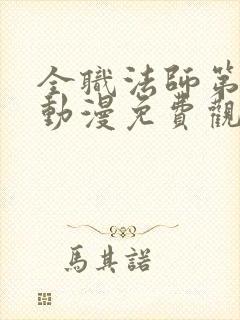 全職法師第
動漫免費觀
馬其諾